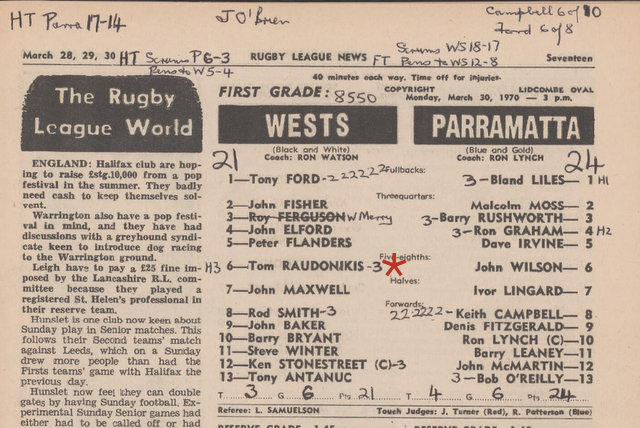 HT Parra 17-14
J O'Brien
Campbell 6 of 10
Ford 6 of 8
March 28, 29, 30
HT Scrums P 6-3
Pens to W 5-4
RUGBY LEAGUE NEWS
FT Scrums WS 18-17
Pens to WS 12-8
Seventeen
The Rugby
League World
ENGLAND: Halifax club are hop-
ing to raise £stg.10,000 from a pop
festival in the summer. They badly
need cash to keep themselves sol-
vent.
Warrington also have a pop festi-
val in mind, and they have had
discussions with a greyhound syndi-
cate keen to introduce dog racing
to the Warrington ground.
Leigh have to pay a £25 fine im-
posed by the Lancashire R.L. com-
mittee because they played a
registered St. Helen's professional in
their reserve team.
Hunslet is one club now keen about
Sunday play in Senior matches. This
follows their Second teams' match
against Leeds, which on a Sunday
drew more people than had the
Firsts teams' game with Halifax the
previous day.
Hunslet now feel they can double
gates by having Sunday football. Ex-
perimental Sunday Senior games had
either had to be called off or had
40 minutes each way. Time off for injuries.
FIRST GRADE: 8550
COPYRIGHT
LIDCOMBE OVAL
Monday, March 30, 1970 — 3 p.m.
WESTS
PARRAMATTA
(Black and White)
(Blue and Gold)
21
Coach: RON WATSON
Coach: RON LYNCH
24
Fullbacks:
1—Tony FORD-222222
3-Bland LILES—1 H1
Threequarters:
2—John FISHER
Malcolm MOSS—2
3—Roy FERGUSON W Merry
3-Barry RUSHWORTH—3
4—John ELFORD
3-Ron GRAHAM—4 H2
5—Peter FLANDERS
Dave IRVINE—5
Five-eighths:
H3 6—Tom RAUDONIKIS-3
John WILSON—6
Halves:
7—John MAXWELL
Ivor LINGARD—7
Forwards:
8—Rod SMITH-3
222222-Keith CAMPBELL—8
9—John BAKER
Denis FITZGERALD—9
10—Barry BRYANT
Ron LYNCH (C)—10
11—Steve WINTER
Barry LEANEY—11
12—Ken STONESTREET (C)-3
John McMARTIN—12
13—Tony ANTANUC
3-Bob O'REILLY—13
T. 3 G 6 Pts 21
T 4 G 6 Pts 24
Referee: L. SAMUELSON
Touch Judges: J. Turner (Red), R. Patterson (Blue)